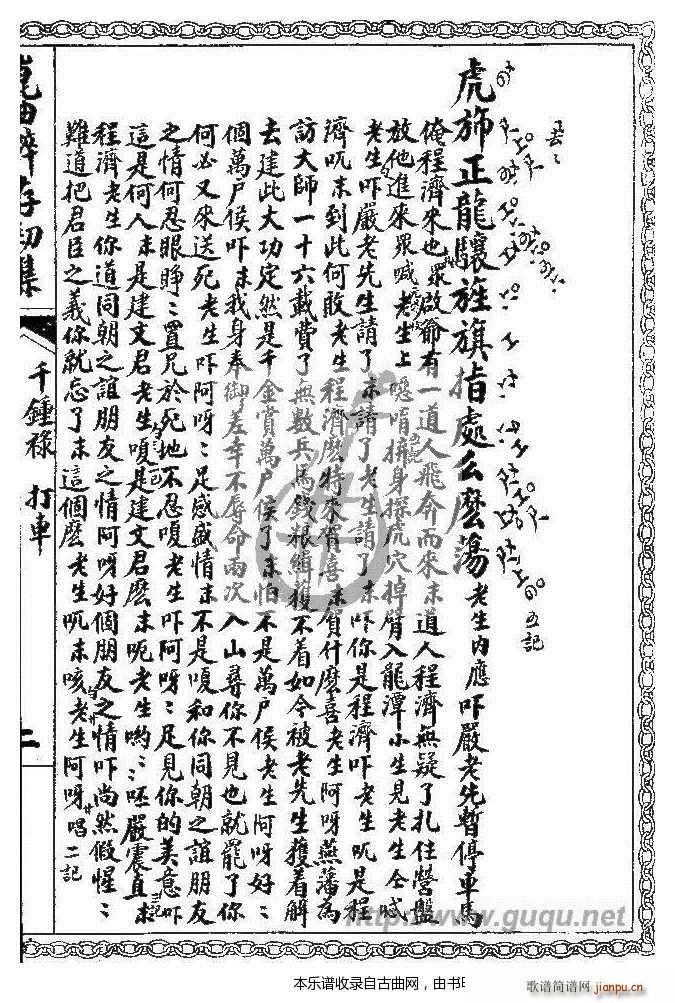 虎旆正龍驤旌旗指處么麽蕩老生内應吓嚴老先暫停車馬
俺程濟來也眾啟爺有一道人飛奔而來末道人程濟無疑了扎住營盤
放他進來眾喊老生上噁唷擠身探虎穴掉臂入龍潭小生見老生仝喊
老生吓嚴老先生請了末請了老生請了末吓你是程濟吓老生呃是程
濟呃末到此何敢老生程濟麽特來賀喜末賀什麽喜老生阿呀燕藩為
訪大師一十六載費了無數兵馬錢糧緝獲不着如今被老先生獲着解
去建此大功定然是千金賞萬户侯了末怕不是萬户侯老生阿呀好ミ
個萬户侯吓末我身奉御差幸不辱命兩次入山尋你不見也就罷了你
何必又來送死老生吓阿呀ミ足感盛情末不是嗄和你同朝之誼朋友
之情何忍眼睜ミ置兄於死地不忍嗄老生吓阿呀ミ足見你的美意吓
這是何人末是建文君老生嗄是建文君麽末呃老生喲ミミ呸嚴震直末
程濟老生你道同朝之誼朋友之情阿呀好個朋友之情吓尚然假惺ミ
難道把君臣之義你就忘了末這個麽老生呃末咳老生阿呀唱二記
五記
千鍾祿 打車
二
http://www.guqu.net
本乐谱收录自古曲网，由书
歌谱简谱网
jianpu.cn